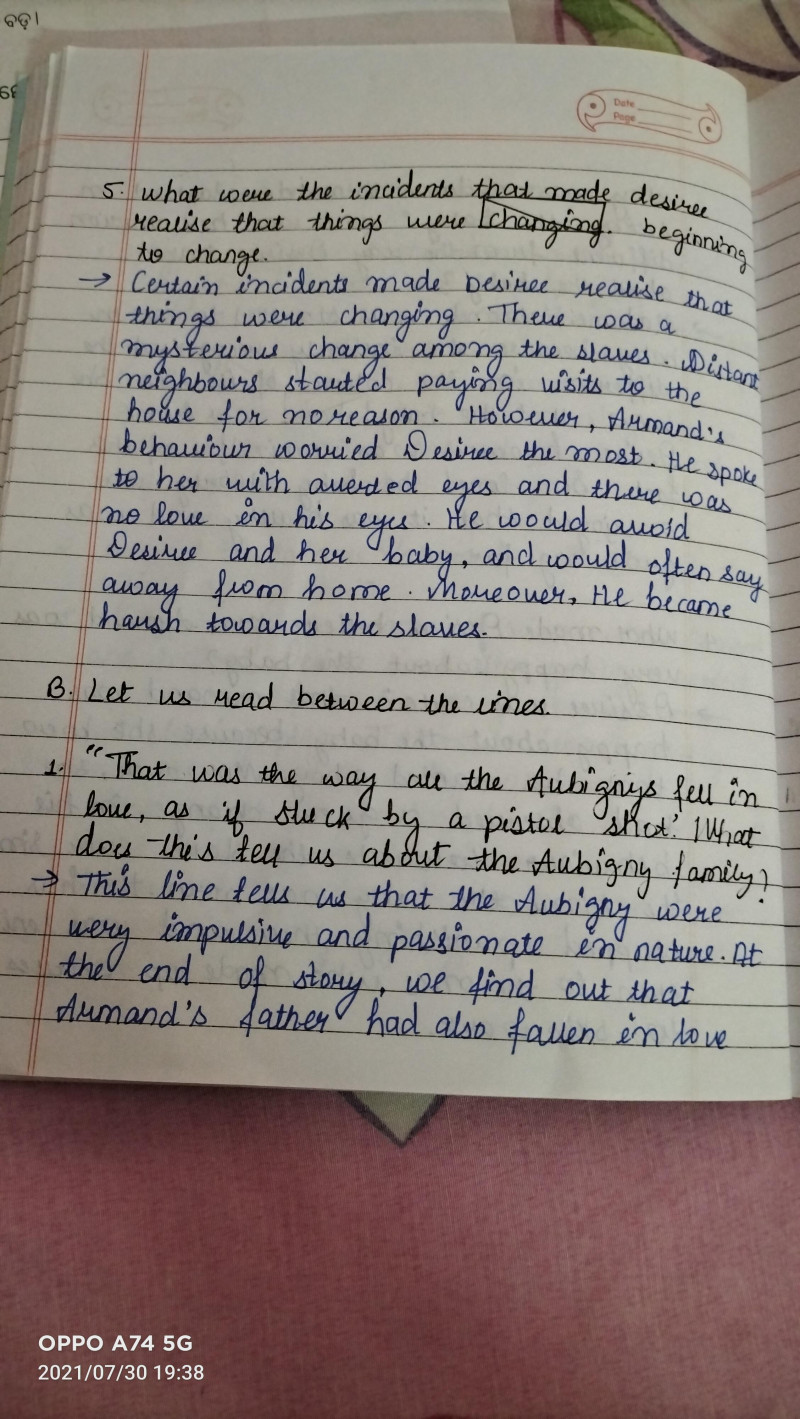 ବଡ଼।
Date
Page
5. What were the incidents that made desiree
realise that things were changing. beginning
to change.
→ Certain incidents made Desiree realise that
things were changing. There was a
mysterious change among the slaves. Distant
neighbours started paying visits to the
house for no reason. However, Armand's
behaviour worried Desiree the most. He spoke
to her with averted eyes and there was
no love in his eyes. He would avoid
Desiree and her baby, and would often say
away from home. Moreover, He became
harsh towards the slaves.
B. Let us read between the lines.
1. "That was the way all the Aubignys fell in
love, as if stuck by a pistol shot". What
does this tell us about the Aubigny family?
→ This line tells us that the Aubigny were
very impulsive and passionate in nature. At
the end of story, we find out that
Armand's father had also fallen in love
OPPO A74 5G
2021/07/30 19:38